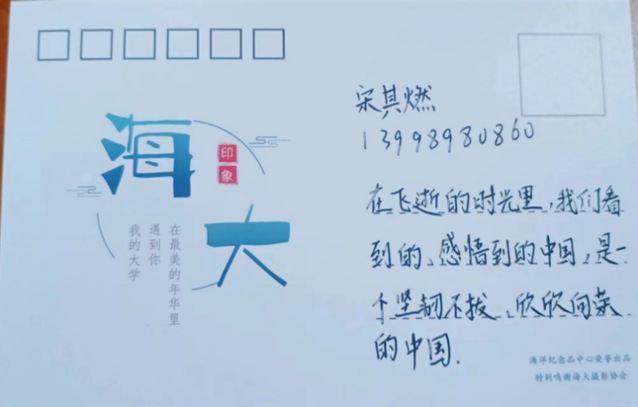 海大
印象
在最美的年华里
遇到你
我的大学
宋其燃
13998980860
在飞逝的时光里,我们看
到的、感悟到的中国,是一
个坚韧不拔、欣欣向荣
的中国.
海洋纪念品中心荣誉出品
特别鸣谢海大摄影协会